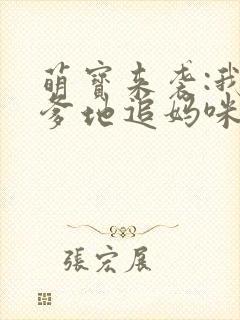 萌寶来袭:我
爹地追妈咪
張宏展